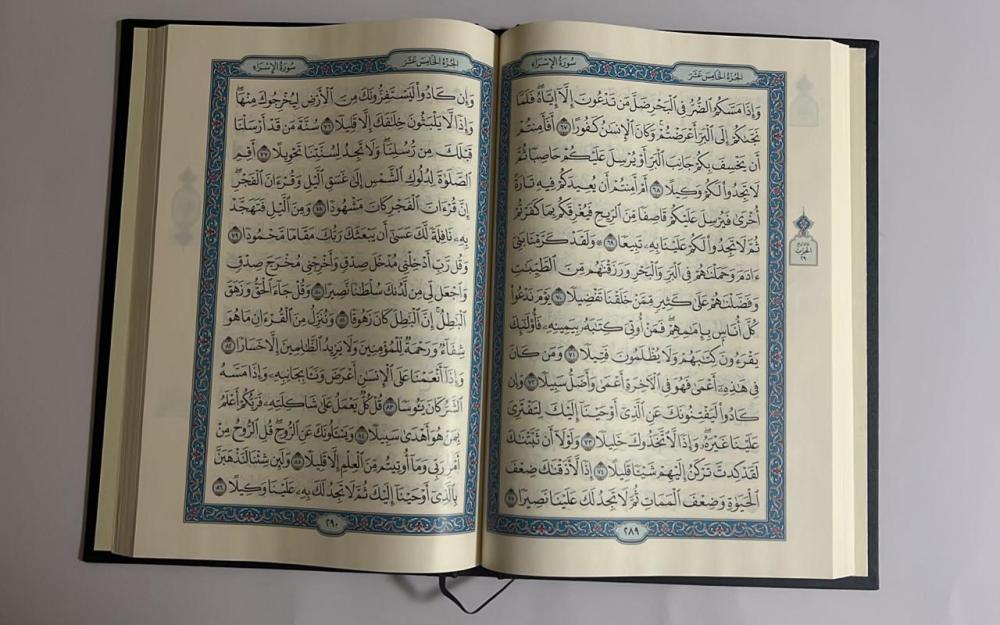 سُورَةُ الإِسْرَاءِ
الجُزْءُ الخَامِسَ عَشَرَ
وَإِذَا مَسَّكُمُ ٱلضُّرُّ فِي ٱلْبَحْرِ ضَلَّ مَن تَدْعُونَ إِلَّآ إِيَّاهُۖ فَلَمَّا
نَجَّىٰكُمْ إِلَى ٱلْبَرِّ أَعْرَضْتُمْۚ وَكَانَ ٱلْإِنسَٰنُ كَفُورًا ٦٧ أَفَأَمِنتُمْ
أَن يَخْسِفَ بِكُمْ جَانِبَ ٱلْبَرِّ أَوْ يُرْسِلَ عَلَيْكُمْ حَاصِبًا ثُمَّ
لَا تَجِدُوا۟ لَكُمْ وَكِيلًا ٦٨ أَمْ أَمِنتُمْ أَن يُعِيدَكُمْ فِيهِ تَارَةً
أُخْرَىٰ فَيُرْسِلَ عَلَيْكُمْ قَاصِفًا مِّنَ ٱلرِّيحِ فَيُغْرِقَكُم بِمَا كَفَرْتُمْ
ثُمَّ لَا تَجِدُوا۟ لَكُمْ عَلَيْنَا بِهِۦ تَبِيعًا ٦٩ ۞ وَلَقَدْ كَرَّمْنَا بَنِيٓ
ءَادَمَ وَحَمَلْنَٰهُمْ فِي ٱلْبَرِّ وَٱلْبَحْرِ وَرَزَقْنَٰهُم مِّنَ ٱلطَّيِّبَٰتِ
وَفَضَّلْنَٰهُمْ عَلَىٰ كَثِيرٍ مِّمَّنْ خَلَقْنَا تَفْضِيلًا ٧٠ يَوْمَ نَدْعُوا۟
كُلَّ أُنَاسٍۭ بِإِمَٰمِهِمْۖ فَمَنْ أُوتِيَ كِتَٰبَهُۥ بِيَمِينِهِۦ فَأُو۟لَٰٓئِكَ
يَقْرَءُونَ كِتَٰبَهُمْ وَلَا يُظْلَمُونَ فَتِيلًا ٧١ وَمَن كَانَ
فِي هَٰذِهِۦٓ أَعْمَىٰ فَهُوَ فِي ٱلْءَاخِرَةِ أَعْمَىٰ وَأَضَلُّ سَبِيلًا ٧٢ وَإِن
كَادُوا۟ لَيَفْتِنُونَكَ عَنِ ٱلَّذِيٓ أَوْحَيْنَآ إِلَيْكَ لِتَفْتَرِيَ
عَلَيْنَا غَيْرَهُۥۖ وَإِذًا لَّٱتَّخَذُوكَ خَلِيلًا ٧٣ وَلَوْلَآ أَن ثَبَّتْنَٰكَ
لَقَدْ كِدتَّ تَرْكَنُ إِلَيْهِمْ شَيْـًٔا قَلِيلًا ٧٤ إِذًا لَّأَذَقْنَٰكَ ضِعْفَ
ٱلْحَيَوٰةِ وَضِعْفَ ٱلْمَمَاتِ ثُمَّ لَا تَجِدُ لَكَ عَلَيْنَا نَصِيرًا ٧٥
٢٨٩
الحِزْب
٢٩
سُورَةُ الإِسْرَاءِ
الجُزْءُ الخَامِسَ عَشَرَ
وَإِن كَادُوا۟ لَيَسْتَفِزُّونَكَ مِنَ ٱلْأَرْضِ لِيُخْرِجُوكَ مِنْهَاۖ
وَإِذًا لَّا يَلْبَثُونَ خِلَٰفَكَ إِلَّا قَلِيلًا ٧٦ سُنَّةَ مَن قَدْ أَرْسَلْنَا
قَبْلَكَ مِن رُّسُلِنَاۖ وَلَا تَجِدُ لِسُنَّتِنَا تَحْوِيلًا ٧٧ أَقِمِ
ٱلصَّلَوٰةَ لِدُلُوكِ ٱلشَّمْسِ إِلَىٰ غَسَقِ ٱلَّيْلِ وَقُرْءَانَ ٱلْفَجْرِۖ
إِنَّ قُرْءَانَ ٱلْفَجْرِ كَانَ مَشْهُودًا ٧٨ وَمِنَ ٱلَّيْلِ فَتَهَجَّدْ
بِهِۦ نَافِلَةً لَّكَ عَسَىٰٓ أَن يَبْعَثَكَ رَبُّكَ مَقَامًا مَّحْمُودًا ٧٩
وَقُل رَّبِّ أَدْخِلْنِي مُدْخَلَ صِدْقٍ وَأَخْرِجْنِي مُخْرَجَ صِدْقٍ
وَٱجْعَل لِّي مِن لَّدُنكَ سُلْطَٰنًا نَّصِيرًا ٨٠ وَقُلْ جَآءَ ٱلْحَقُّ وَزَهَقَ
ٱلْبَٰطِلُۚ إِنَّ ٱلْبَٰطِلَ كَانَ زَهُوقًا ٨١ وَنُنَزِّلُ مِنَ ٱلْقُرْءَانِ مَا هُوَ
شِفَآءٌ وَرَحْمَةٌ لِّلْمُؤْمِنِينَ وَلَا يَزِيدُ ٱلظَّٰلِمِينَ إِلَّا خَسَارًا ٨٢
وَإِذَآ أَنْعَمْنَا عَلَى ٱلْإِنسَٰنِ أَعْرَضَ وَنَـَٔا بِجَانِبِهِۦ وَإِذَا مَسَّهُ
ٱلشَّرُّ كَانَ يَـُٔوسًا ٨٣ قُلْ كُلٌّ يَعْمَلُ عَلَىٰ شَاكِلَتِهِۦ فَرَبُّكُمْ أَعْلَمُ
بِمَنْ هُوَ أَهْدَىٰ سَبِيلًا ٨٤ وَيَسْـَٔلُونَكَ عَنِ ٱلرُّوحِۖ قُلِ ٱلرُّوحُ مِنْ
أَمْرِ رَبِّي وَمَآ أُوتِيتُم مِّنَ ٱلْعِلْمِ إِلَّا قَلِيلًا ٨٥ وَلَئِن شِئْنَا لَنَذْهَبَنَّ
بِٱلَّذِيٓ أَوْحَيْنَآ إِلَيْكَ ثُمَّ لَا تَجِدُ لَكَ بِهِۦ عَلَيْنَا وَكِيلًا ٨٦
٢٩٠